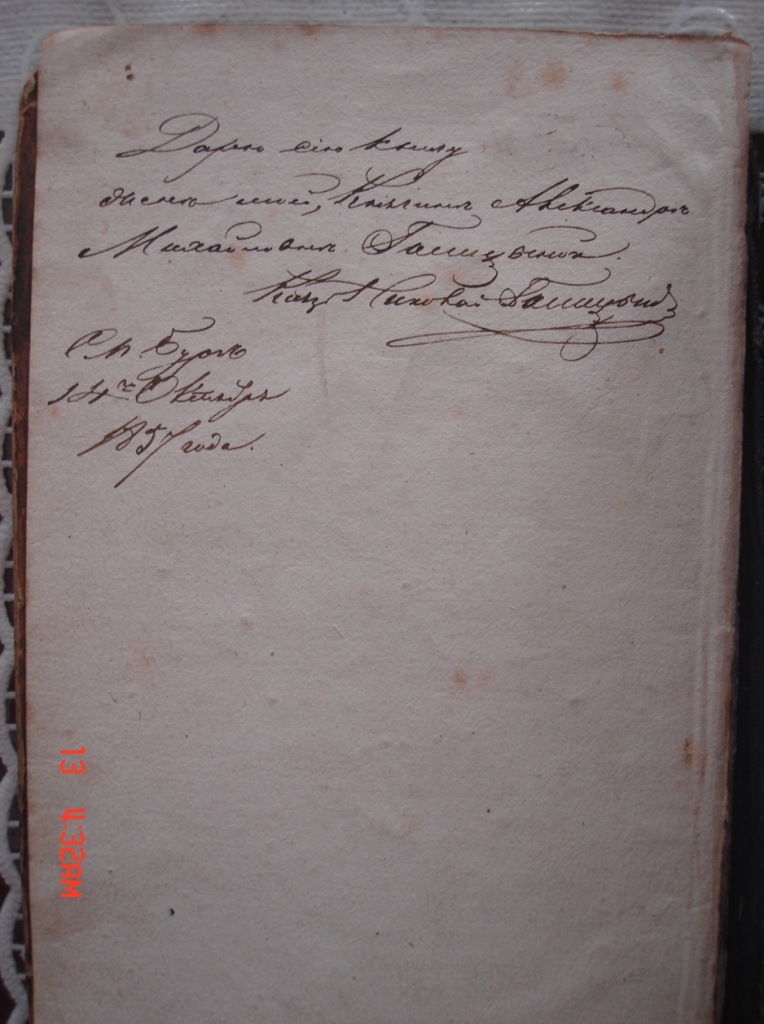 Дарю сію книгу
женѣ моей, Княгинѣ Александрѣ
Михайловнѣ Голицыной.
Князь Николай Голицынъ
С П Бургъ
14го Октября
1857 года.
13 4:32AM